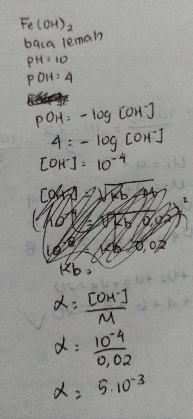 Fe(OH)₂
basa lemah
pH = 10
pOH = 4
pOH = -log [OH⁻]
4 = -log [OH⁻]
[OH⁻] = 10⁻⁴
[OH⁻] = √Kb . M
10⁻⁸ = Kb . 0,02
Kb =
α = [OH⁻] / M
α = 10⁻⁴ / 0,02
α = 5.10⁻³